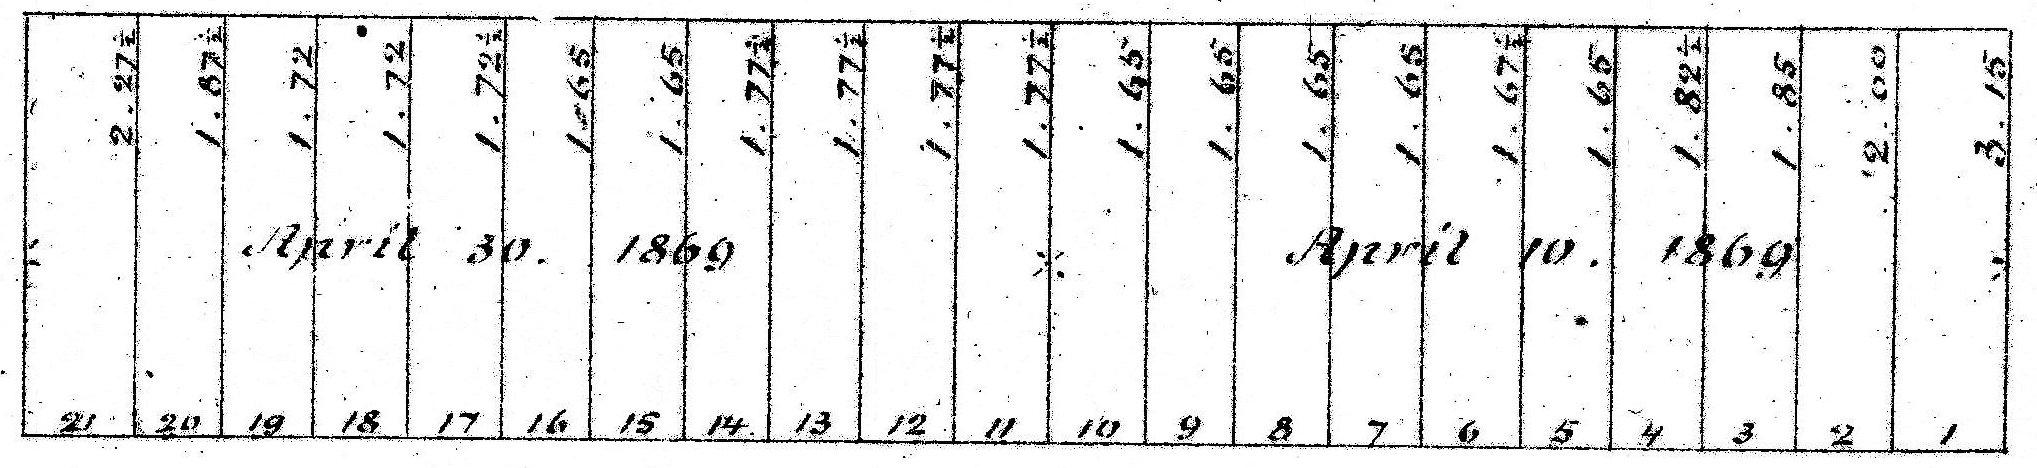 2.27½ 1.87½ 1.72 1.72 1.72½ 1.65 1.65 1.77½ 1.77½ 1.77½ 1.77½ 1.65 1.65 1.65 1.65 1.67½ 1.65 1.82½ 1.85 2.00 3.15
April 30. 1869 April 10. 1869
21 20 19 18 17 16 15 14 13 12 11 10 9 8 7 6 5 4 3 2 1